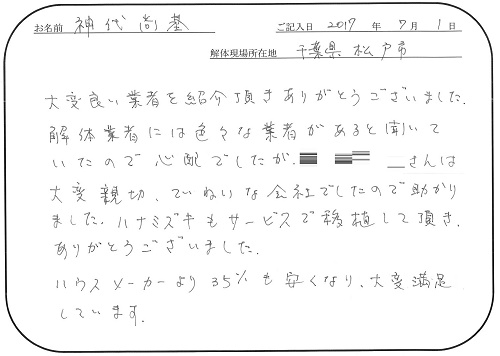 お名前 神代尚基 ご記入日 2017 年 7 月 1 日
解体現場所在地 千葉県松戸市
大変良い業者を紹介頂きありがとうございました.
解体業者には色々な業者があると聞いて
いたので心配でしたが. さんは
大変親切、ていねいな会社でしたので助かり
ました. ハナミズキもサービスで移植して頂き.
ありがとうございました.
ハウスメーカーより35%も安くなり、大変満足
しています.